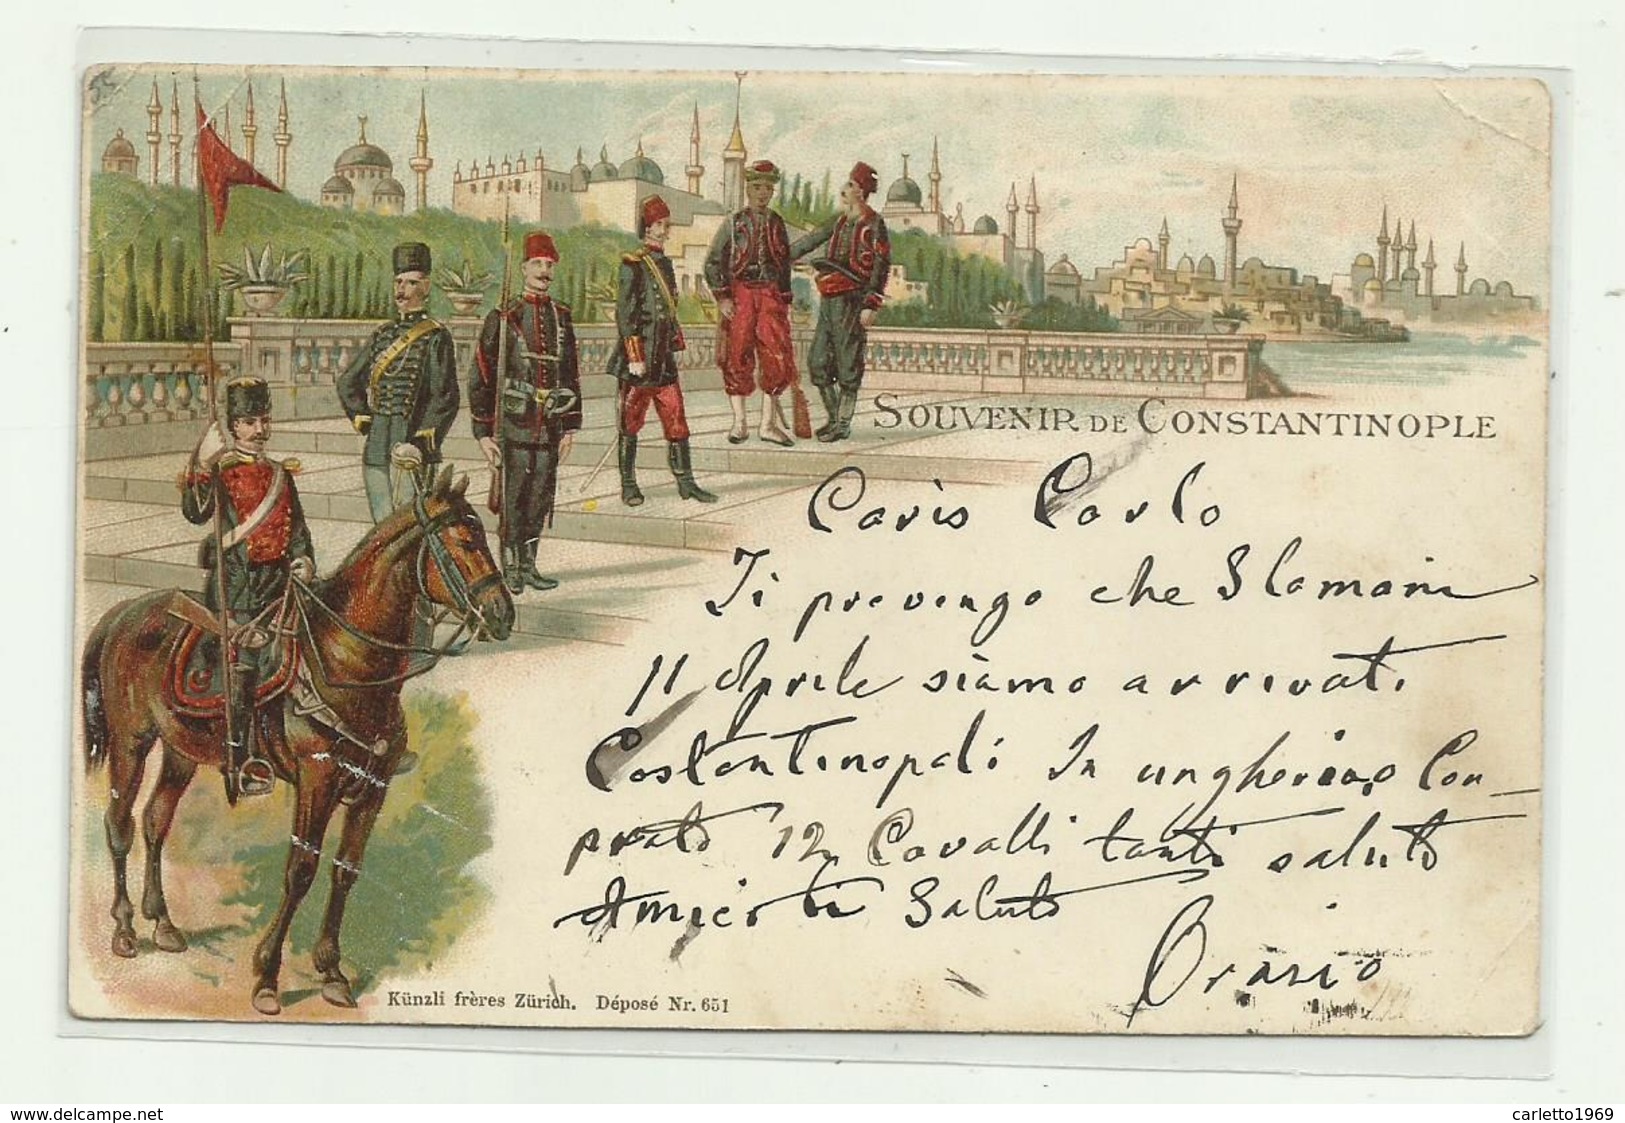 55
SOUVENIR DE CONSTANTINOPLE
Caris Carlo
Ti prevengo che Stamani
11 Aprile siamo arrivati
Costantinopoli In ungheria Con_
prato 12 Cavalli tanti saluti
Amico ti Saluto
Orasio
Künzli frères Zürich. Déposé Nr. 651
www.delcampe.net
carletto1969